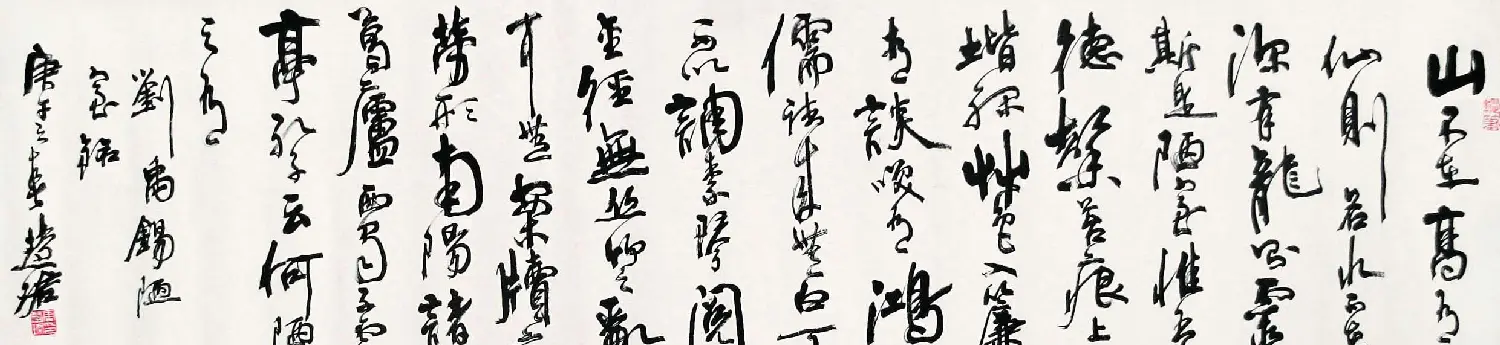 山不在高有
仙則名水不在
深有龍則靈
斯是陋室惟吾
德馨苔痕上
堦綠草色入簾
有談笑有鴻
儒往來無白丁可
以調素琴閱
金經無絲竹之亂
耳無案牘之
勞形南陽諸
葛廬西蜀子雲
亭孔子云何陋
之有
劉禹錫陋
室銘
庚午之春